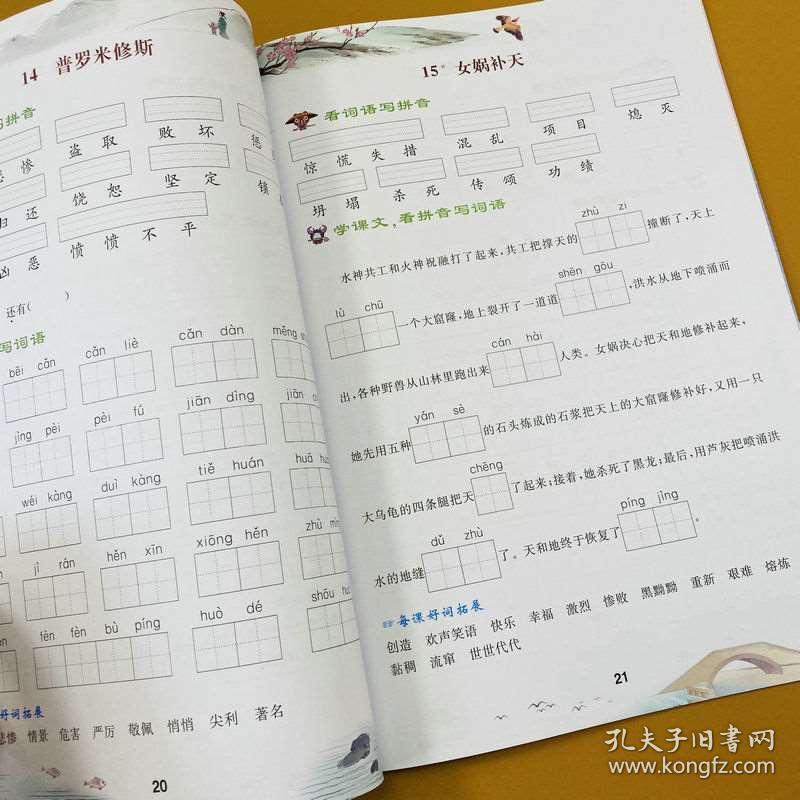 14 普罗米修斯
写拼音
惨 盗取 败坏
归还 饶恕 坚定 锁
凶恶 愤愤不平
还有( )
写词语
bēi cǎn cǎn liè cǎn dàn měng
jìng pèi pèi fú jiān dìng
wéi kàng duì kàng tiě huán huā
jì rán hěn xīn xiōng hěn zhù
fèn fèn bù píng huò dé shōu
好词拓展
悲惨 情景 危害 严厉 敬佩 悄悄 尖利 著名
20
15* 女娲补天
看词语写拼音
惊慌失措 混乱 项目 熄灭
坍塌 杀死 传颂 功绩
学课文,看拼音写词语
zhù zi
水神共工和火神祝融打了起来,共工把撑天的 撞断了,天上
lù chū shēn gōu
一个大窟窿,地上裂开了一道道 ,洪水从地下喷涌而
cán hài
出,各种野兽从山林里跑出来 人类。女娲决心把天和地修补起来,
yán sè
她先用五种 的石头炼成的石浆把天上的大窟窿修补好,又用一只
chēng
大乌龟的四条腿把天 了起来;接着,她杀死了黑龙;最后,用芦灰把喷涌洪
dǔ zhù píng jìng
水的地缝 了。天和地终于恢复了 。
每课好词拓展
创造 欢声笑语 快乐 幸福 激烈 惨败 黑黝黝 重新 艰难 熔炼
黏稠 流窜 世世代代
21
孔夫子旧书网
www.kongfz.com